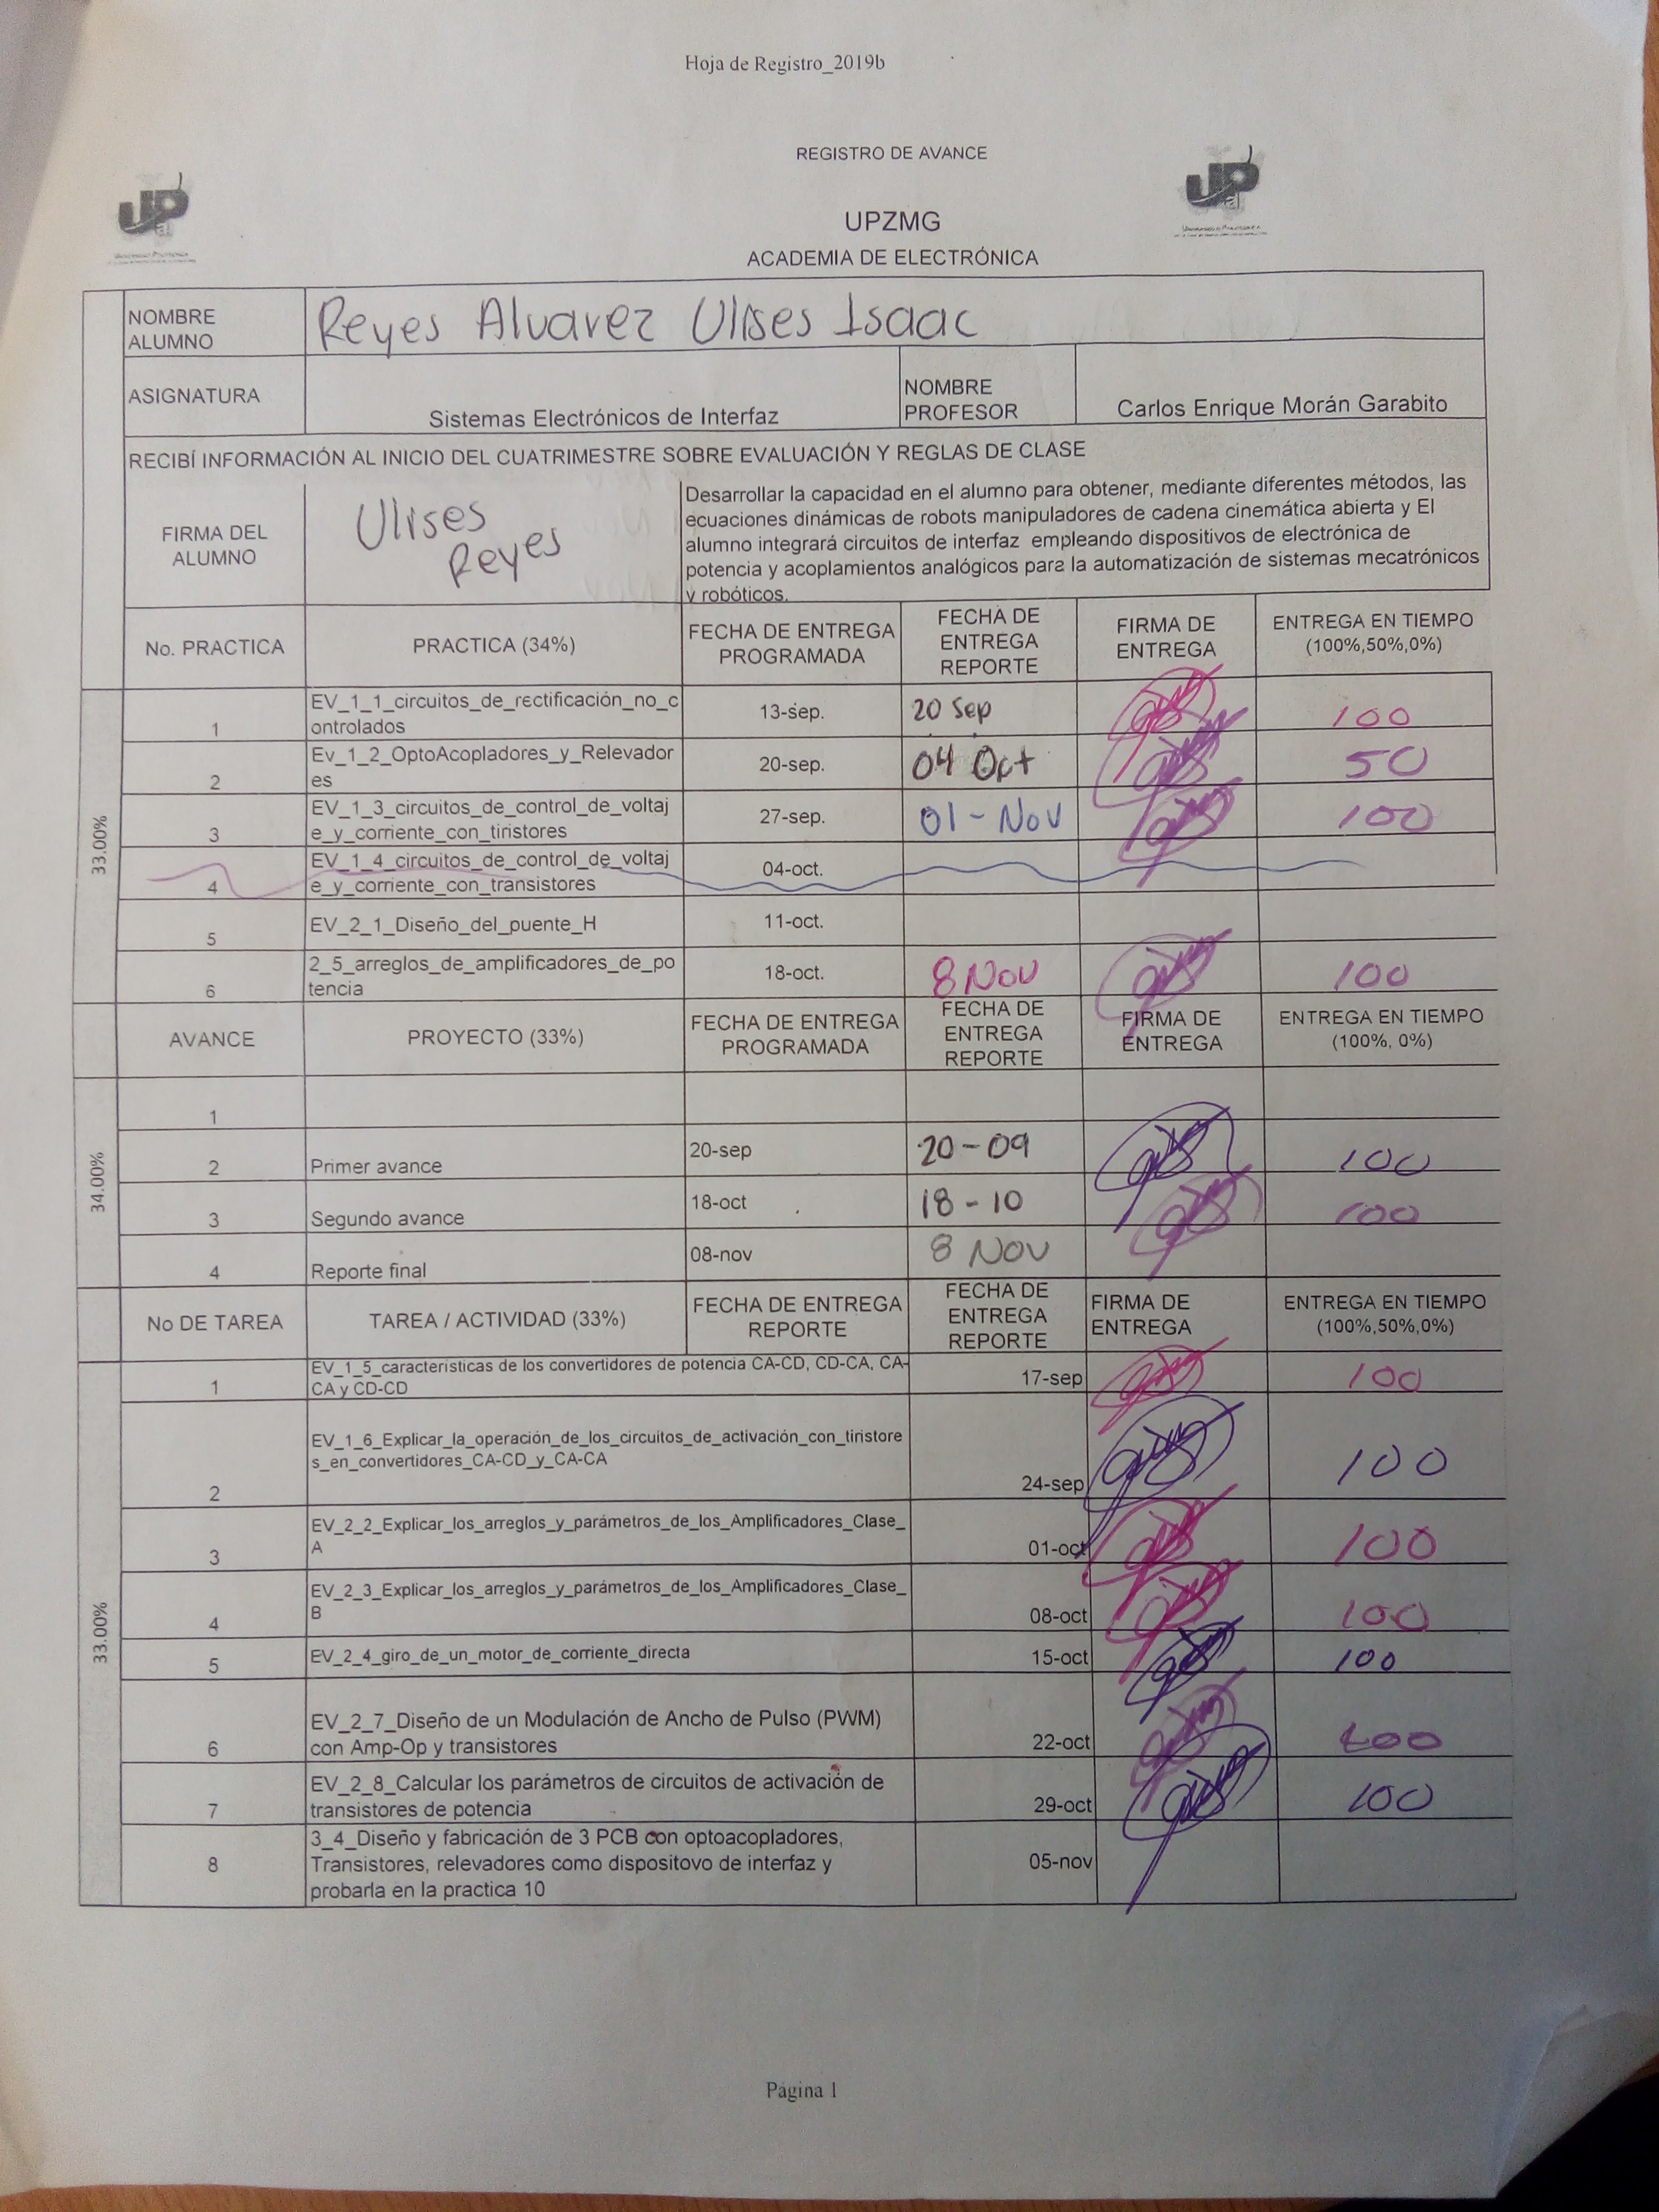 Hoja de Registro_2019b
REGISTRO DE AVANCE
UPZMG
ACADEMIA DE ELECTRÓNICA
NOMBRE
ALUMNO
Reyes Alvarez Ulises Isaac
ASIGNATURA
Sistemas Electrónicos de Interfaz
NOMBRE
PROFESOR
Carlos Enrique Morán Garabito
RECIBÍ INFORMACIÓN AL INICIO DEL CUATRIMESTRE SOBRE EVALUACIÓN Y REGLAS DE CLASE
FIRMA DEL
ALUMNO
Ulises
Reyes
Desarrollar la capacidad en el alumno para obtener, mediante diferentes métodos, las
ecuaciones dinámicas de robots manipuladores de cadena cinemática abierta y El
alumno integrará circuitos de interfaz empleando dispositivos de electrónica de
potencia y acoplamientos analógicos para la automatización de sistemas mecatrónicos
y robóticos.
No. PRACTICA
PRACTICA (34%)
FECHA DE ENTREGA
PROGRAMADA
FECHA DE
ENTREGA
REPORTE
FIRMA DE
ENTREGA
ENTREGA EN TIEMPO
(100%,50%,0%)
33.00%
1
EV_1_1_circuitos_de_rectificación_no_c
ontrolados
13-sep.
20 Sep
100
2
Ev_1_2_OptoAcopladores_y_Relevador
es
20-sep.
04 Oct
50
3
EV_1_3_circuitos_de_control_de_voltaj
e_y_corriente_con_tiristores
27-sep.
01-Nov
100
4
EV_1_4_circuitos_de_control_de_voltaj
e_y_corriente_con_transistores
04-oct.
5
EV_2_1_Diseño_del_puente_H
11-oct.
6
2_5_arreglos_de_amplificadores_de_po
tencia
18-oct.
8 Nov
100
AVANCE
PROYECTO (33%)
FECHA DE ENTREGA
PROGRAMADA
FECHA DE
ENTREGA
REPORTE
FIRMA DE
ENTREGA
ENTREGA EN TIEMPO
(100%, 0%)
34.00%
1
2
Primer avance
20-sep
20-09
100
3
Segundo avance
18-oct
18-10
100
4
Reporte final
08-nov
8 NOV
No DE TAREA
TAREA / ACTIVIDAD (33%)
FECHA DE ENTREGA
REPORTE
FECHA DE
ENTREGA
REPORTE
FIRMA DE
ENTREGA
ENTREGA EN TIEMPO
(100%,50%,0%)
33.00%
1
EV_1_5_caracteristicas de los convertidores de potencia CA-CD, CD-CA, CA-
CA y CD-CD
17-sep
100
2
EV_1_6_Explicar_la_operación_de_los_circuitos_de_activación_con_tiristore
s_en_convertidores_CA-CD_y_CA-CA
24-sep
100
3
EV_2_2_Explicar_los_arreglos_y_parámetros_de_los_Amplificadores_Clase_
A
01-oct
100
4
EV_2_3_Explicar_los_arreglos_y_parámetros_de_los_Amplificadores_Clase_
B
08-oct
100
5
EV_2_4_giro_de_un_motor_de_corriente_directa
15-oct
100
6
EV_2_7_Diseño de un Modulación de Ancho de Pulso (PWM)
con Amp-Op y transistores
22-oct
100
7
EV_2_8_Calcular los parámetros de circuitos de activación de
transistores de potencia
29-oct
100
8
3_4_Diseño y fabricación de 3 PCB con optoacopladores,
Transistores, relevadores como dispositovo de interfaz y
probarla en la practica 10
05-nov
Página 1